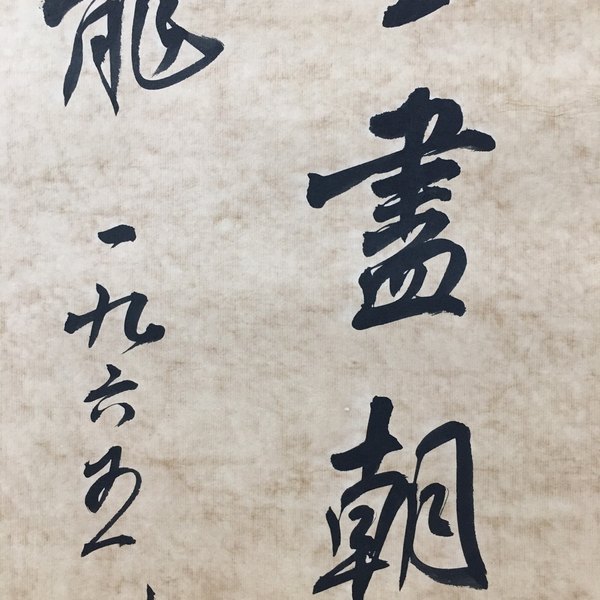 盡朝
龍
一九六五